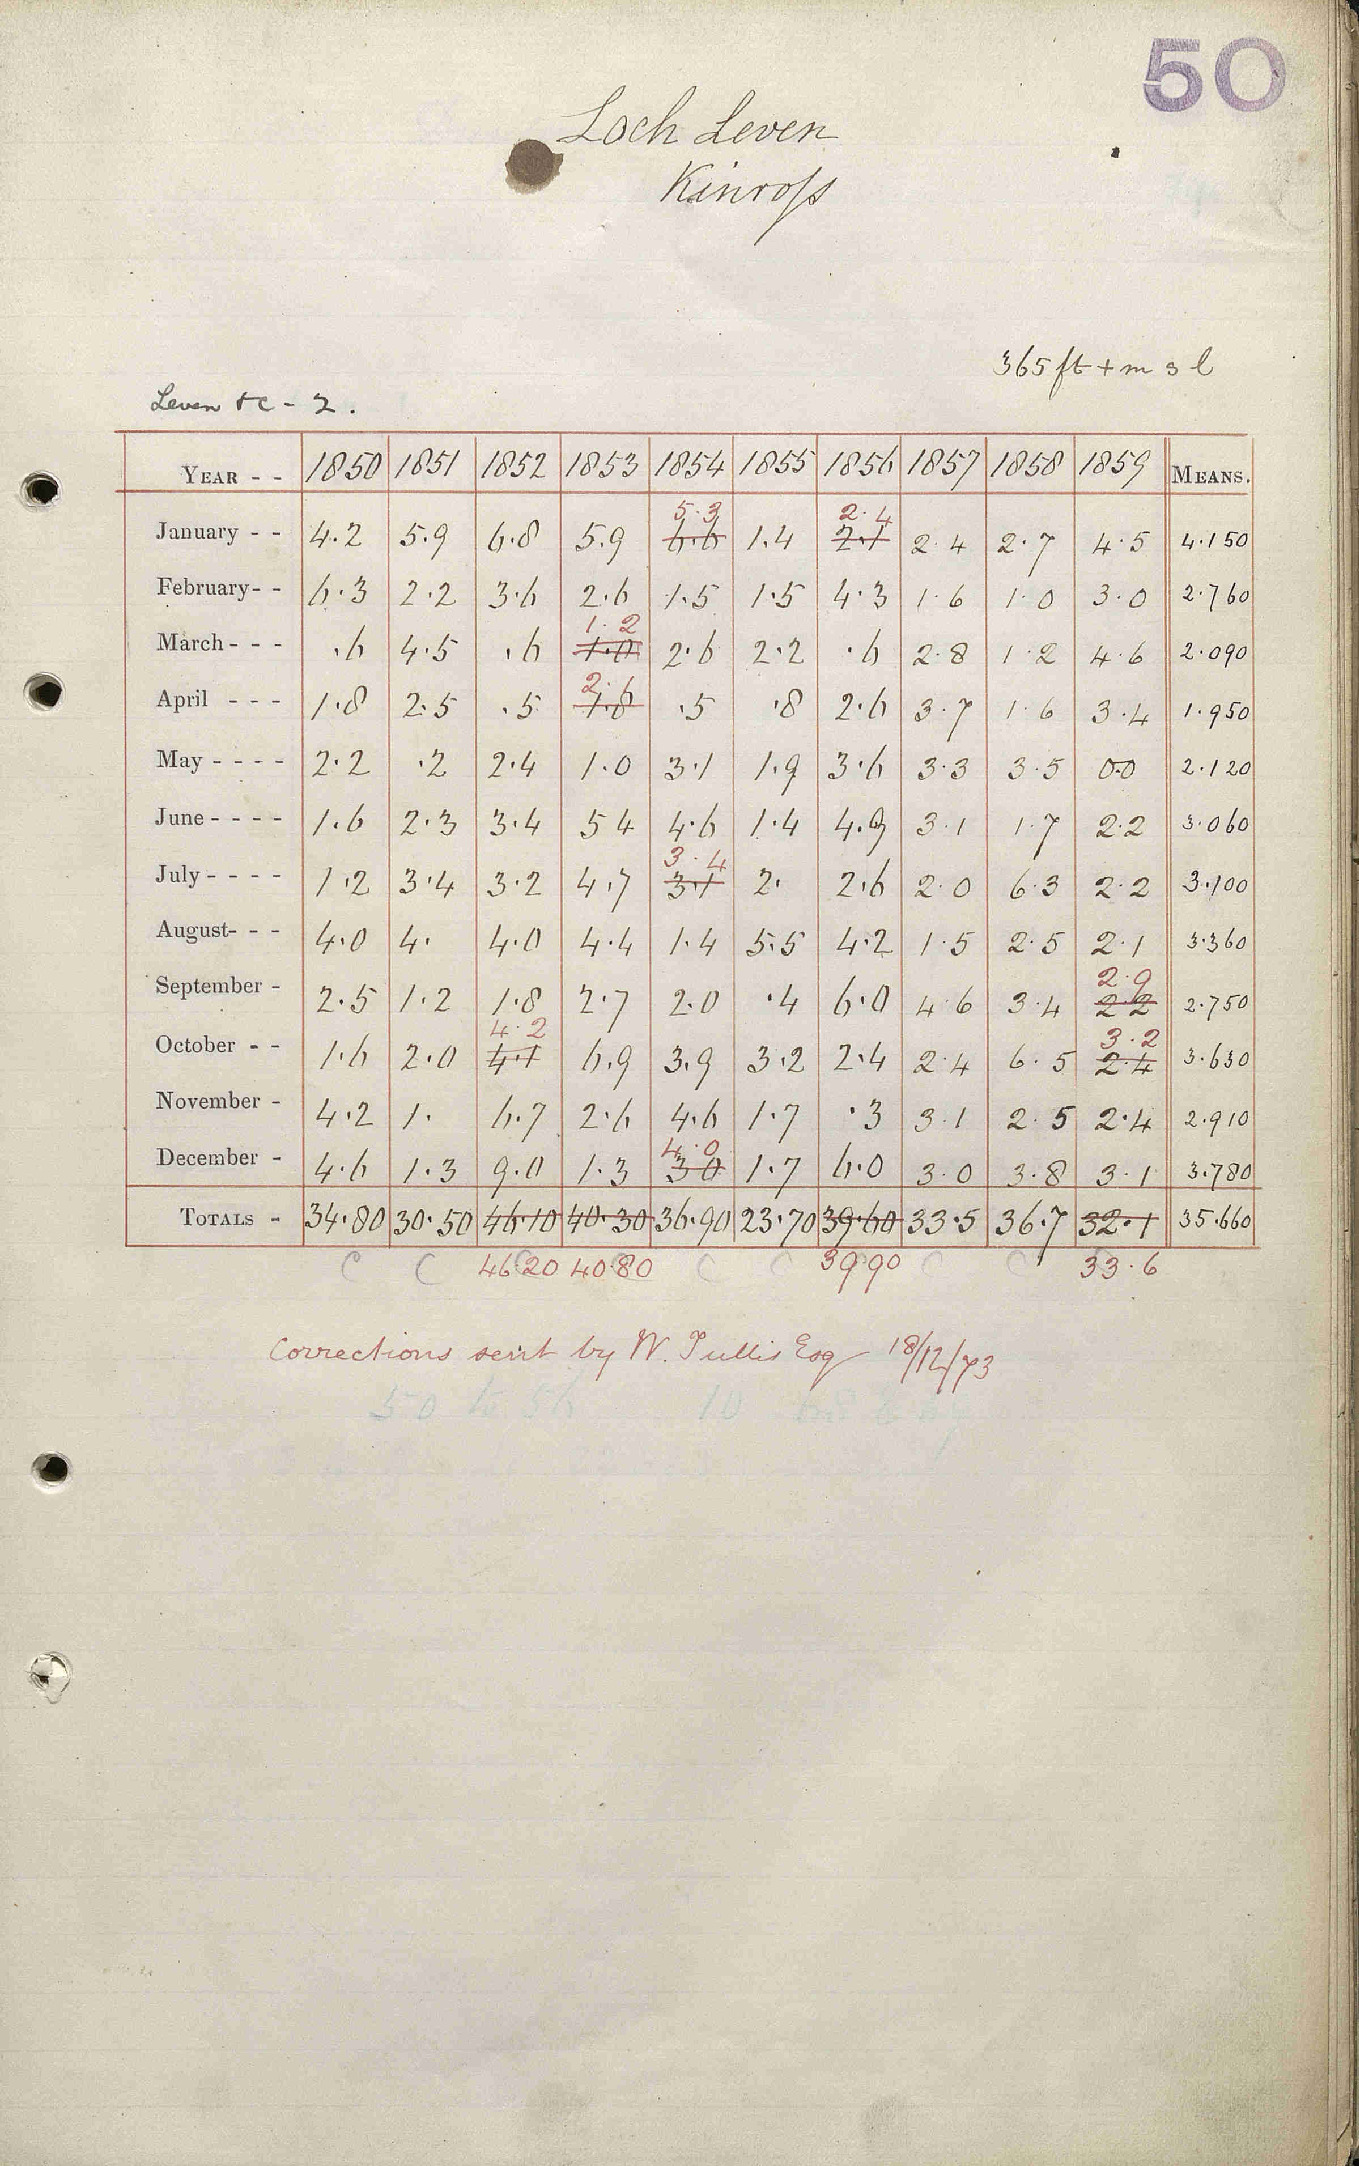 50
Loch Leven
Kinross
365 ft + m s l
Leven &c - 2.
YEAR - - 1850 1851 1852 1853 1854 1855 1856 1857 1858 1859 MEANS.
5.3 2.4
January - - 4.2 5.9 6.8 5.9 6.6 1.4 2.1 2.4 2.7 4.5 4.150
February - - 6.3 2.2 3.6 2.6 1.5 1.5 4.3 1.6 1.0 3.0 2.760
1.2
March - - - .6 4.5 .6 1.0 2.6 2.2 .6 2.8 1.2 4.6 2.090
2.6
April - - - 1.8 2.5 .5 1.8 .5 .8 2.6 3.7 1.6 3.4 1.950
May - - - - 2.2 .2 2.4 1.0 3.1 1.9 3.6 3.3 3.5 0.0 2.120
June - - - - 1.6 2.3 3.4 5 4 4.6 1.4 4.9 3.1 1.7 2.2 3.060
3.4
July - - - - 1.2 3.4 3.2 4.7 3.1 2. 2.6 2.0 6.3 2.2 3.100
August - - - 4.0 4. 4.0 4.4 1.4 5.5 4.2 1.5 2.5 2.1 3.360
2.9
September - 2.5 1.2 1.8 2.7 2.0 .4 6.0 4.6 3.4 2.2 2.750
4.2 3.2
October - - 1.6 2.0 4.1 6.9 3.9 3.2 2.4 2.4 6.5 2.4 3.630
November - 4.2 1. 6.7 2.6 4.6 1.7 .3 3.1 2.5 2.4 2.910
4.0
December - 4.6 1.3 9.0 1.3 3 0 1.7 6.0 3.0 3.8 3.1 3.780
TOTALS - 34.80 30.50 46.10 40.30 36.90 23.70 39.60 33.5 36.7 32.1 35.660
C C 46.20 40.80 C C 39.90 C C 33.6
Corrections sent by W. Tullis Esq 18/12/73